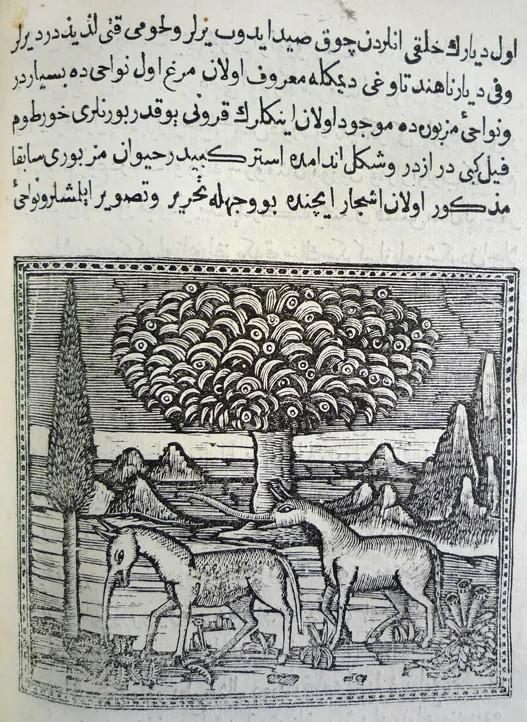 اول ديارك خلقى انلردن چوق صيد ايدوب يرلر ولحومى قتى لذيذ در ديرلر
وفى ديارنا هند تاوغى ديمكله معروف اولان مرغ اول نواحى ده بسيار در
ونواحئ مزبوره ده موجود اولان اينكلرك قرونى يوقدر بورنلرى خورطوم
فيل كبى دراز در وشكل اندامده استر كبيدر حيوان مزبورى سابقا
مذكور اولان اشجار ايچنده بو وجهله تحرير وتصوير ايلمشلر ونواحئ